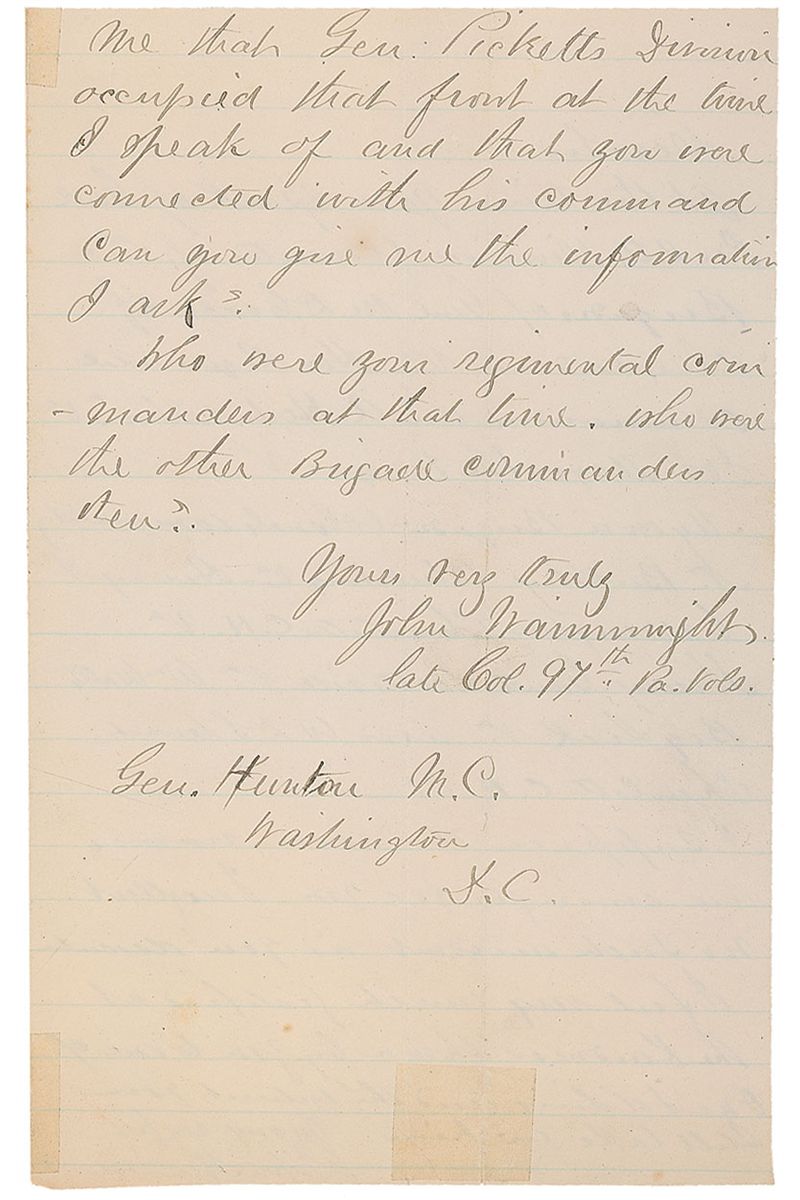 me that Gen. Picketts Division
occupied that front at the time
I speak of and that you were
connected with his command
Can you give me the information
I ask?.
Who were your regimental com
-manders at that time. who were
the other Brigade commanders
then?.
Yours very truly
John Wainwright.
late Col. 97th Pa. Vols.
Gen. Hunton M.C.
Washington
D.C.